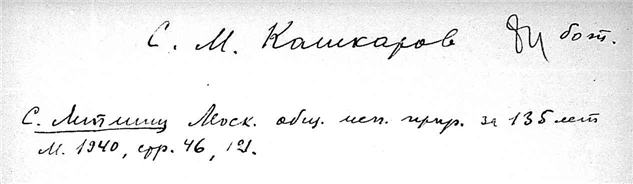 С. М. Кашкаров бот.
С. Липшиц Моск. общ. исп. прир. за 135 лет
М. 1940, стр. 46, 121.